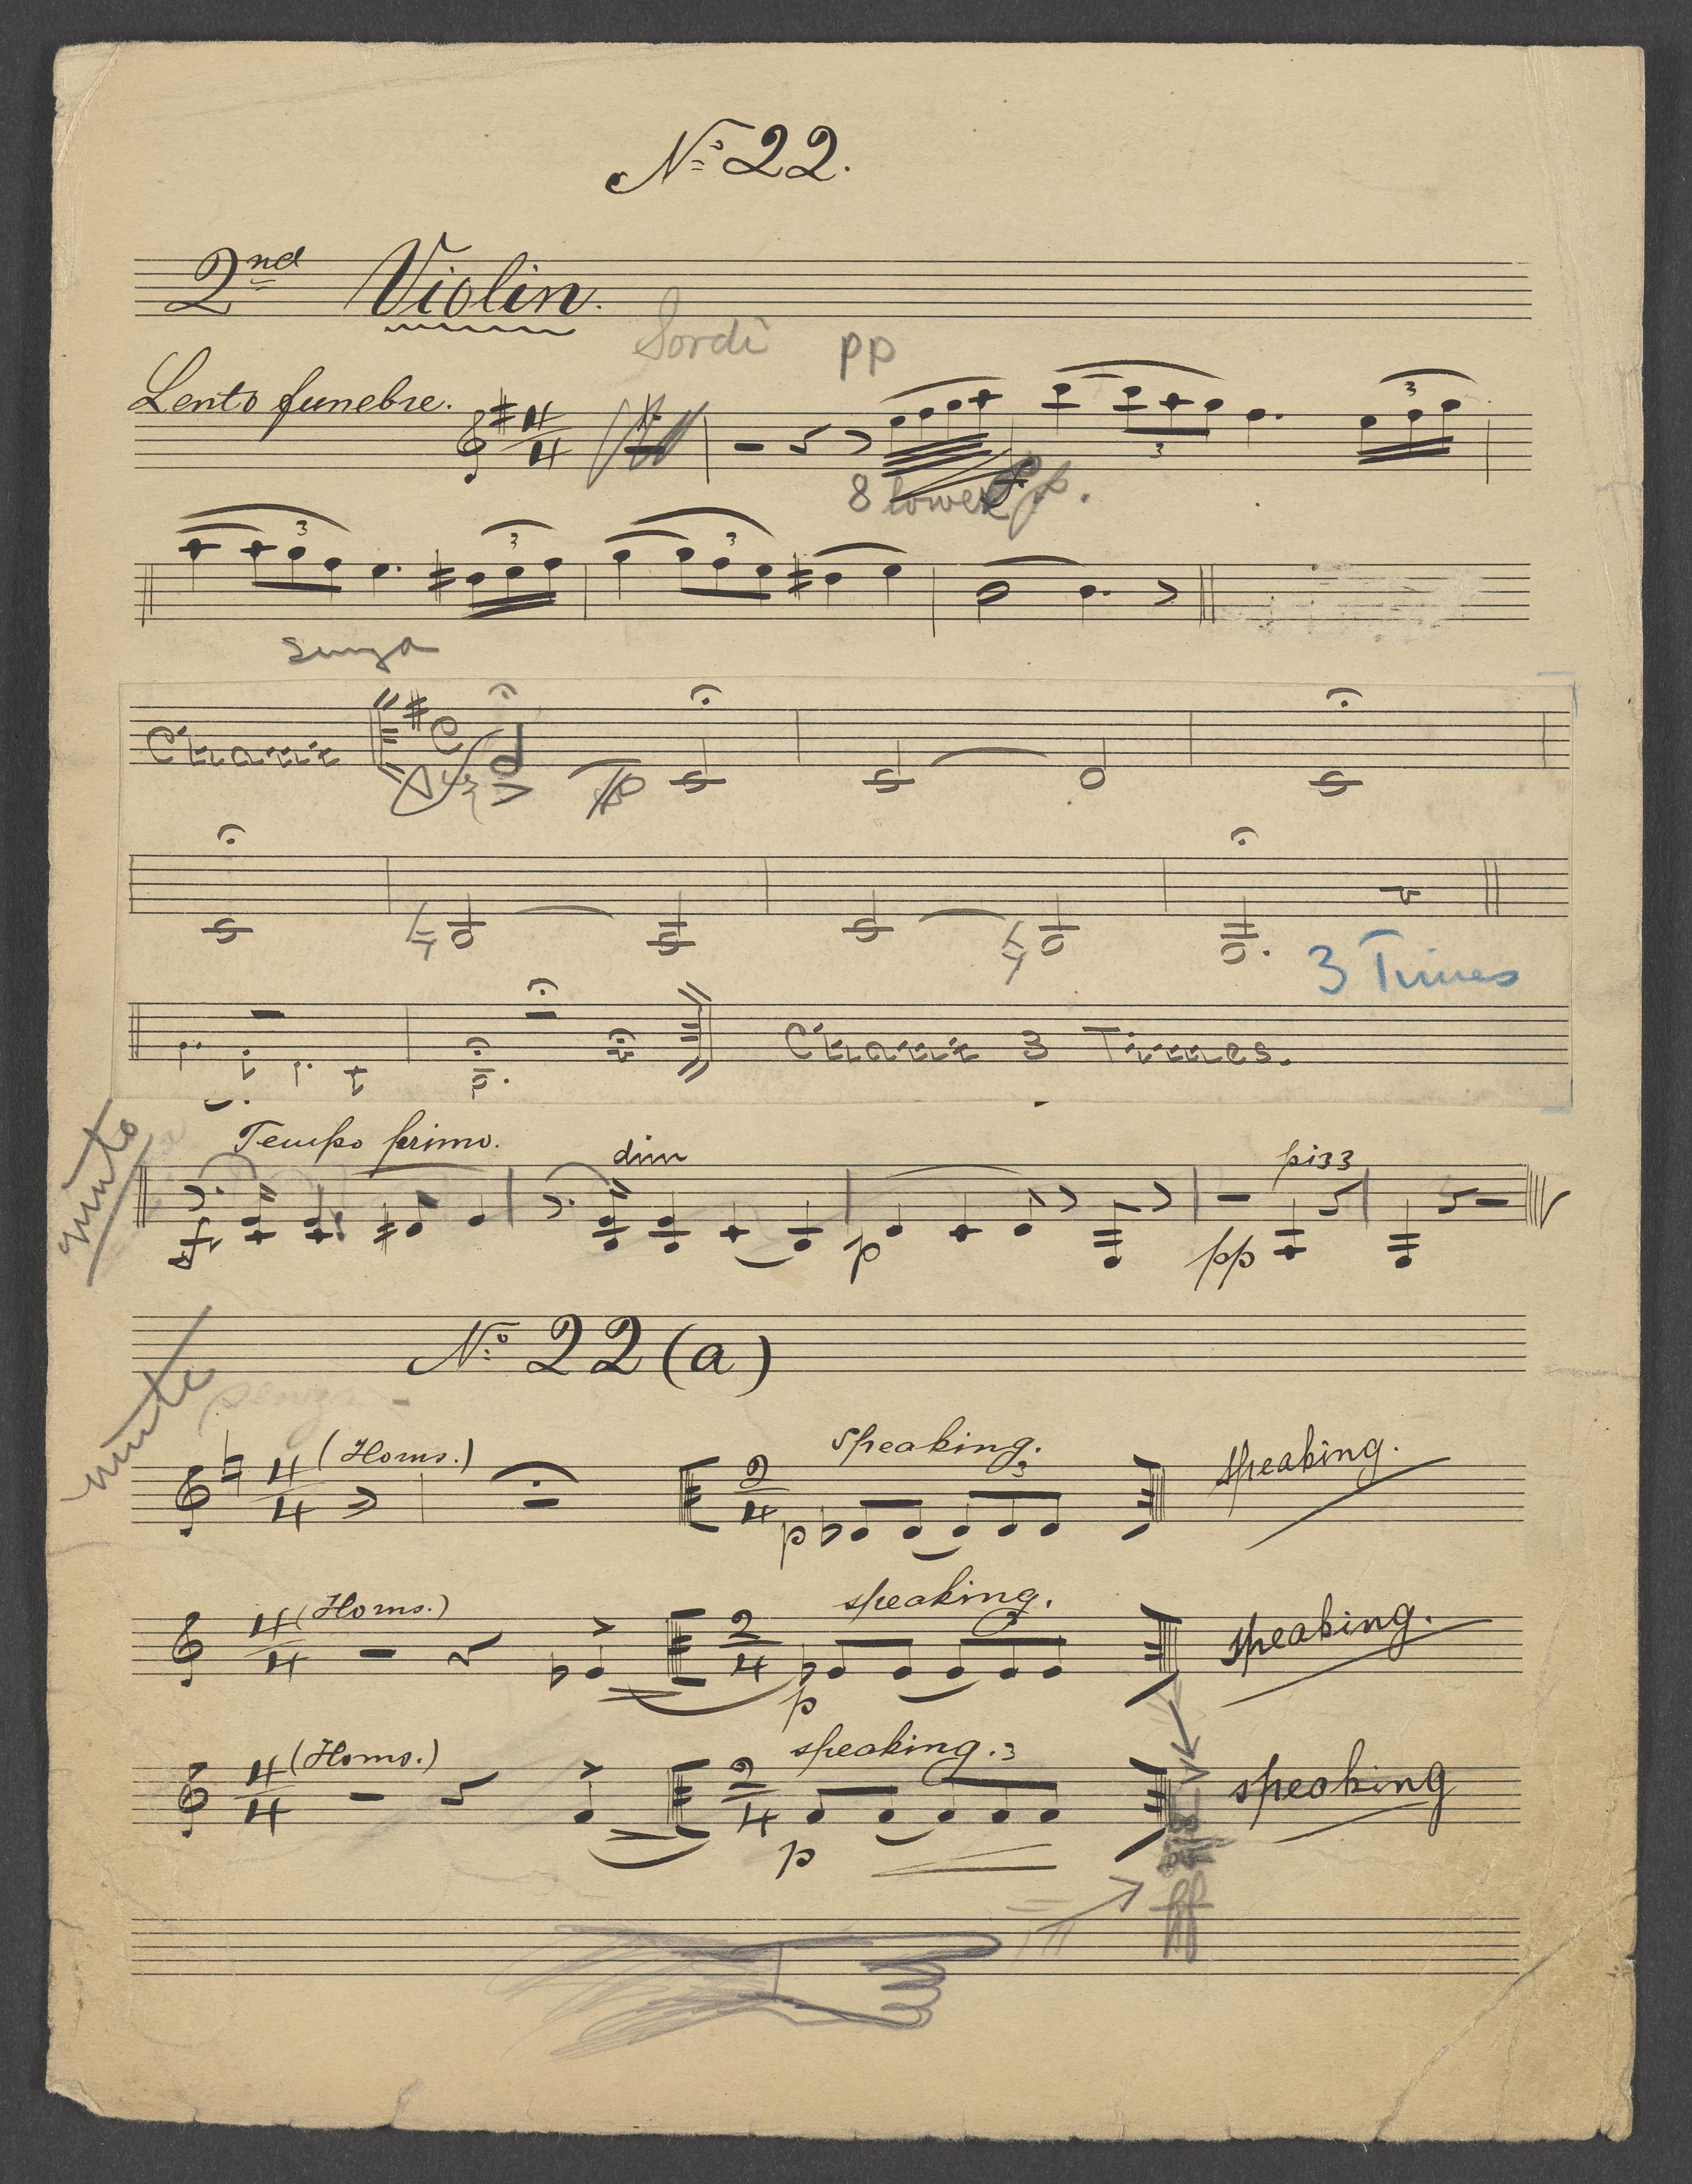 No. 22.
2nd Violin.
Sordi pp
Lento funebre.
3 3
8 lower
3 3 3
senza
Chant
3 Times
Chant 3 Times.
muto
Tempo primo. dim pizz
sf p pp
No. 22 (a)
muto senza
4/4 (Horns.) 2/4 speaking. 3 speaking.
p
4/4 (Horns.) 2/4 speaking. 3 speaking.
p
4/4 (Horns.) 2/4 speaking. 3 speaking
p